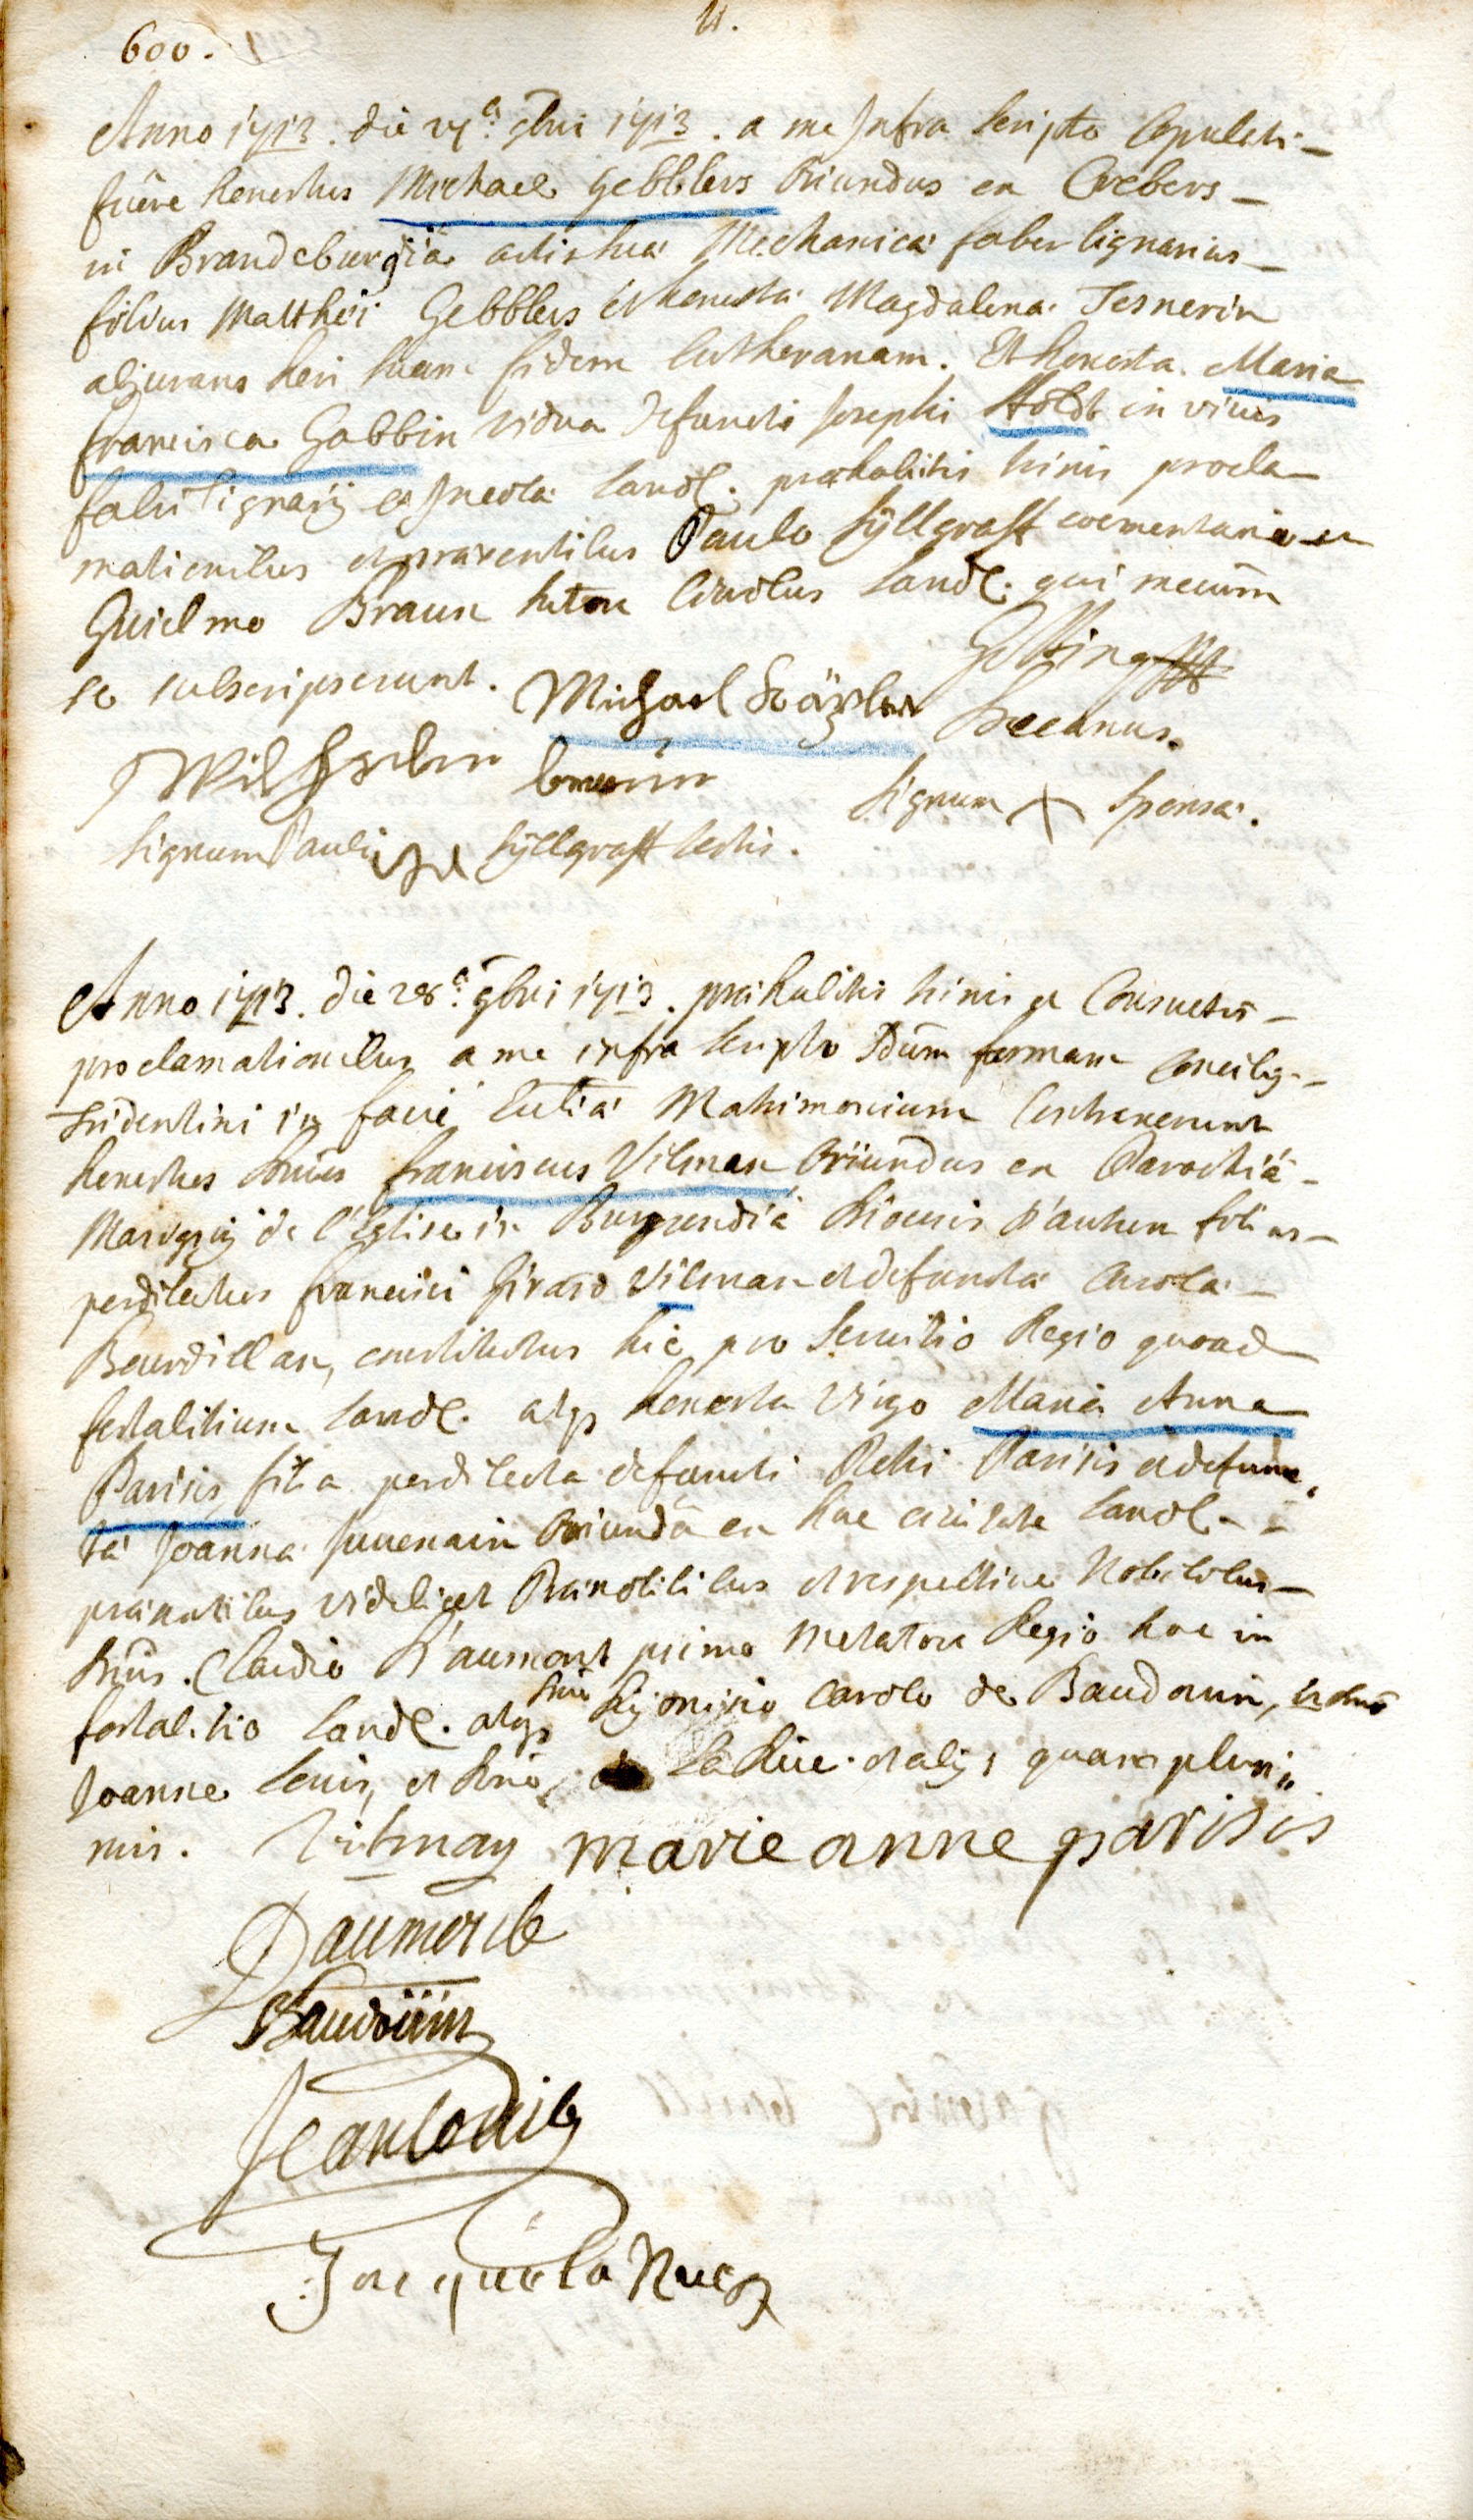 600.
Anno 1713. die 27ª 9bris 1713. a me Infra scripto Copulati
fuêre honestus Michael Gebblers Oriundus ex
in Brandeburgiâ artis suæ Mechanicæ faber lignarius
filius Matthæi Gebblers et honestæ Magdalena Tesnerin
abjurans heri suam fidem Lutheranam. Et honesta Maria
Francisca Gabbin vidua defuncti Josephi Holdt in vivis
fabri lignarij ex Incola Land. præhabitis trinis procla
mationibus et præsentibus Paulo Hÿllgrafft coementario et
Guielmo Braun sutore Civibus Land. qui mecum
se subscripserunt. Michael
Decanus.
Wilhelm
Signum + Sponsæ.
Signum Pauli Hÿllgrafft testis.
Anno 1713. die 28ª 9bris 1713. præhabitis trinis et Consuetis
proclamationibus a me infra scripto Sdum formam Concilij
Tridentini in facie Ecclesiæ Matrimonium Contraxerunt
honestus Dnus Franciscus Vilman Oriundus ex Parochiâ
Marignij de l'Eglise in Burgundiâ Diocesis d'autun filius
perdilectus Francisci Girard Vilman et defunctæ Carolæ
Bourdillan, constitutus hic pro Servitio Regio quoad
fortalitium Land. atq3 honesta Virgo Maria Anna
Parisis filia perdilecta defuncti Petri Parisis et defunc
tæ Joanna Juvenain Oriundâ ex hac civitate Land.
præsentibus videlicet Prænobilibus et respective Nobilibus
Dnis. Claudio D'aumont primo Metatore Regio hoc in
fortalitio Land. atq3 Dno Hyeronimo Carolo de Baudouin, et dno
Joanne Louis, et Dno la Rüe et alijs quam pluri
mis. Vilman marie anne parisis
Daumont
Baudoüin
Jean Louis
Jacque la Rue